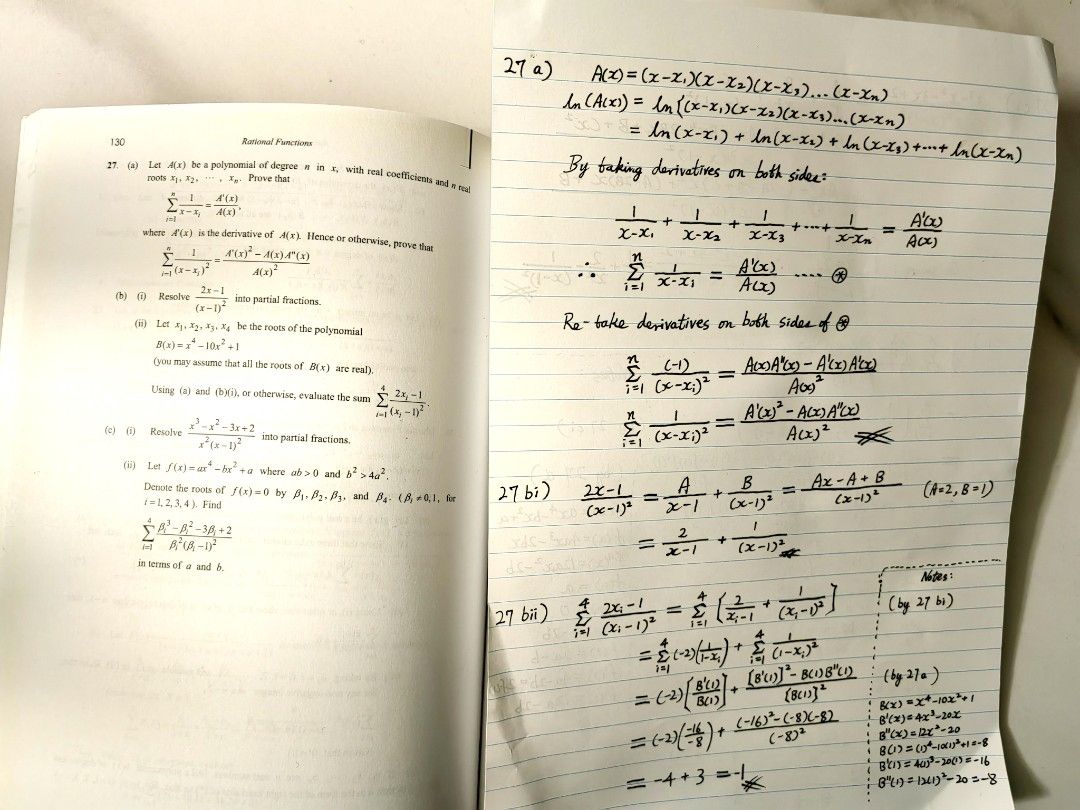 130
Rational Functions
27. (a) Let A(x) be a polynomial of degree n in x, with real coefficients and n real
roots x₁, x₂, ⋯ , xₙ. Prove that
∑ᵢ₌₁ⁿ 1/(x−xᵢ) = A'(x)/A(x),
where A'(x) is the derivative of A(x). Hence or otherwise, prove that
∑ᵢ₌₁ⁿ 1/(x−xᵢ)² = (A'(x)²−A(x)A"(x))/A(x)²
(b) (i) Resolve (2x−1)/(x−1)² into partial fractions.
(ii) Let x₁, x₂, x₃, x₄ be the roots of the polynomial
B(x) = x⁴−10x²+1
(you may assume that all the roots of B(x) are real).
Using (a) and (b)(i), or otherwise, evaluate the sum ∑ᵢ₌₁⁴ (2xᵢ−1)/(xᵢ−1)².
(c) (i) Resolve (x³−x²−3x+2)/(x²(x−1)²) into partial fractions.
(ii) Let f(x) = ax⁴−bx²+a where ab>0 and b²>4a².
Denote the roots of f(x)=0 by β₁, β₂, β₃, and β₄. (βᵢ≠0,1, for
i=1,2,3,4). Find
∑ᵢ₌₁⁴ (βᵢ³−βᵢ²−3βᵢ+2)/(βᵢ²(βᵢ−1)²)
in terms of a and b.
27 a) A(x) = (x-x₁)(x-x₂)(x-x₃)...(x-xₙ)
ln(A(x)) = ln{(x-x₁)(x-x₂)(x-x₃)...(x-xₙ)
= ln(x-x₁) + ln(x-x₂) + ln(x-x₃) +...+ ln(x-xₙ)
By taking derivatives on both sides:
1/(x-x₁) + 1/(x-x₂) + 1/(x-x₃) +...+ 1/(x-xₙ) = A'(x)/A(x)
∴ ∑ᵢ₌₁ⁿ 1/(x-xᵢ) = A'(x)/A(x) ..... ⊛
Re-take derivatives on both sides of ⊛
∑ᵢ₌₁ⁿ (-1)/(x-xᵢ)² = (A(x)A"(x) - A'(x)A'(x))/A(x)²
∑ᵢ₌₁ⁿ 1/(x-xᵢ)² = (A'(x)² - A(x)A"(x))/A(x)²
27 bi) (2x-1)/(x-1)² = A/(x-1) + B/(x-1)² = (Ax-A+B)/(x-1)² (A=2, B=1)
= 2/(x-1) + 1/(x-1)²
27 bii) ∑ᵢ₌₁⁴ (2xᵢ-1)/(xᵢ-1)² = ∑ᵢ₌₁⁴ [2/(xᵢ-1) + 1/(xᵢ-1)²]
= ∑ᵢ₌₁⁴ (-2)(1/(1-xᵢ)) + ∑ᵢ₌₁⁴ 1/(1-xᵢ)²
= (-2)[B'(1)/B(1)] + ([B'(1)]² - B(1)B"(1))/[B(1)]²
= (-2)(-16/-8) + ((-16)²-(-8)(-8))/(-8)²
= -4 + 3 = -1
Notes:
(by 27 bi)
(by 27a)
B(x) = x⁴-10x²+1
B'(x) = 4x³-20x
B"(x) = 12x²-20
B(1) = (1)⁴-10(1)²+1=-8
B'(1) = 4(1)³-20(1)=-16
B"(1) = 12(1)²-20=-8